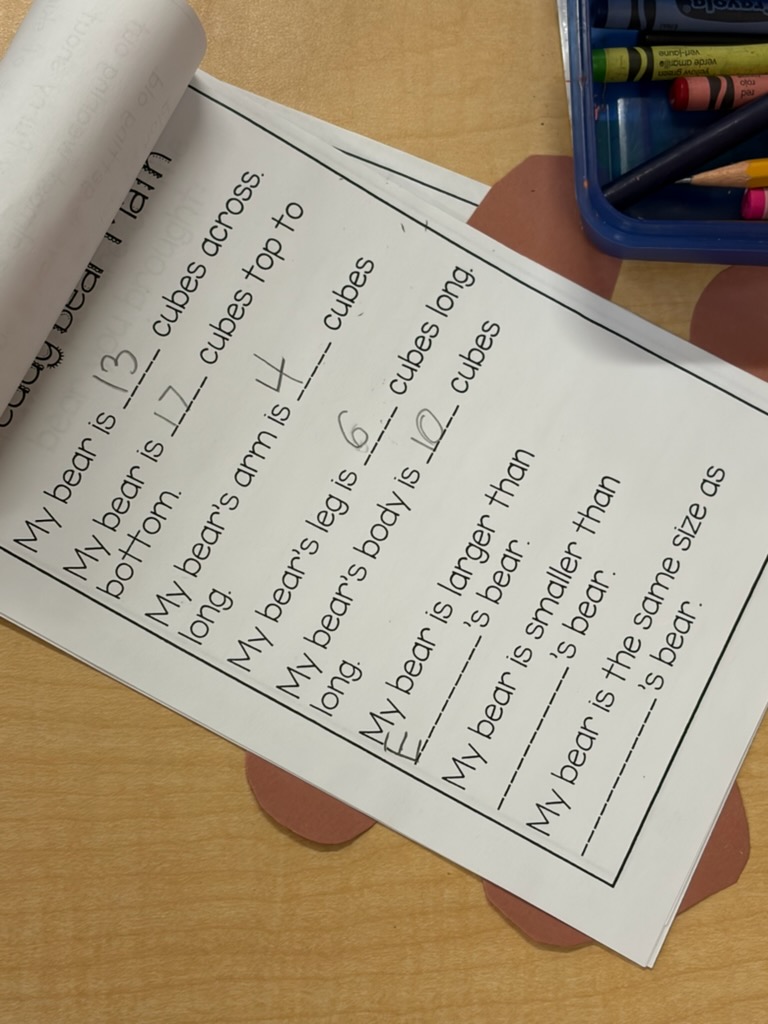 Teddy Bear Math
My bear is 13 cubes across.
My bear is 17 cubes top to
bottom.
My bear's arm is 4 cubes
long.
My bear's leg is 6 cubes long.
My bear's body is 10 cubes
long.
My bear is larger than
E 's bear.
My bear is smaller than
's bear.
My bear is the same size as
's bear.
Crayola
vert-jaune
verde amarillo
yellow green
rojo
red